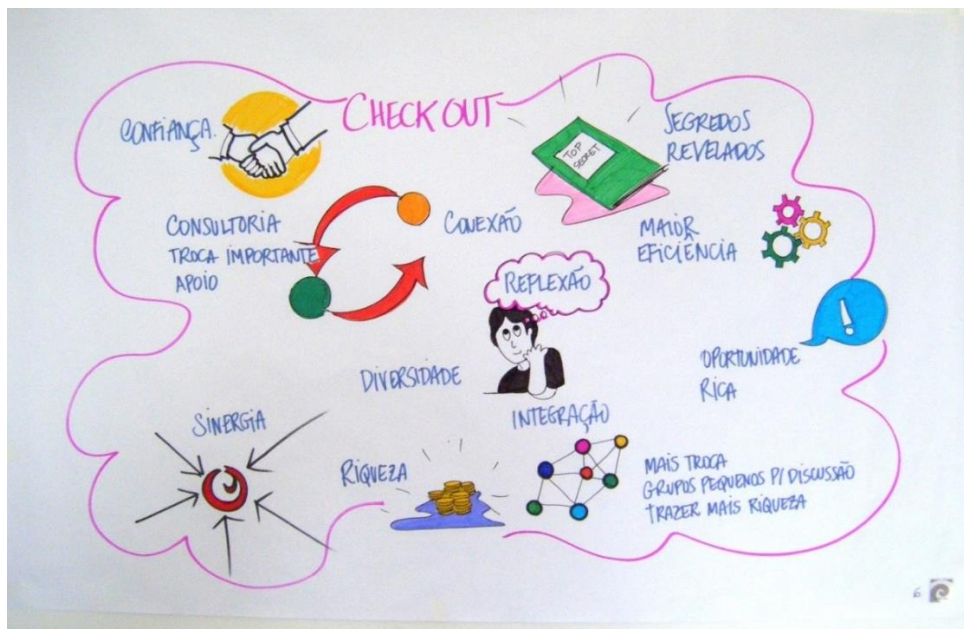 CHECK OUT
CONFIANÇA.
TOP
SECRET
SEGREDOS
REVELADOS
CONSULTORIA
TROCA IMPORTANTE
APOIO
CONEXÃO
MAIOR
EFICIÊNCIA
REFLEXÃO
!
OPORTUNIDADE
RICA
DIVERSIDADE
SINERGIA
INTEGRAÇÃO
RIQUEZA
MAIS TROCA
GRUPOS PEQUENOS P/ DISCUSSÃO
TRAZER MAIS RIQUEZA
6